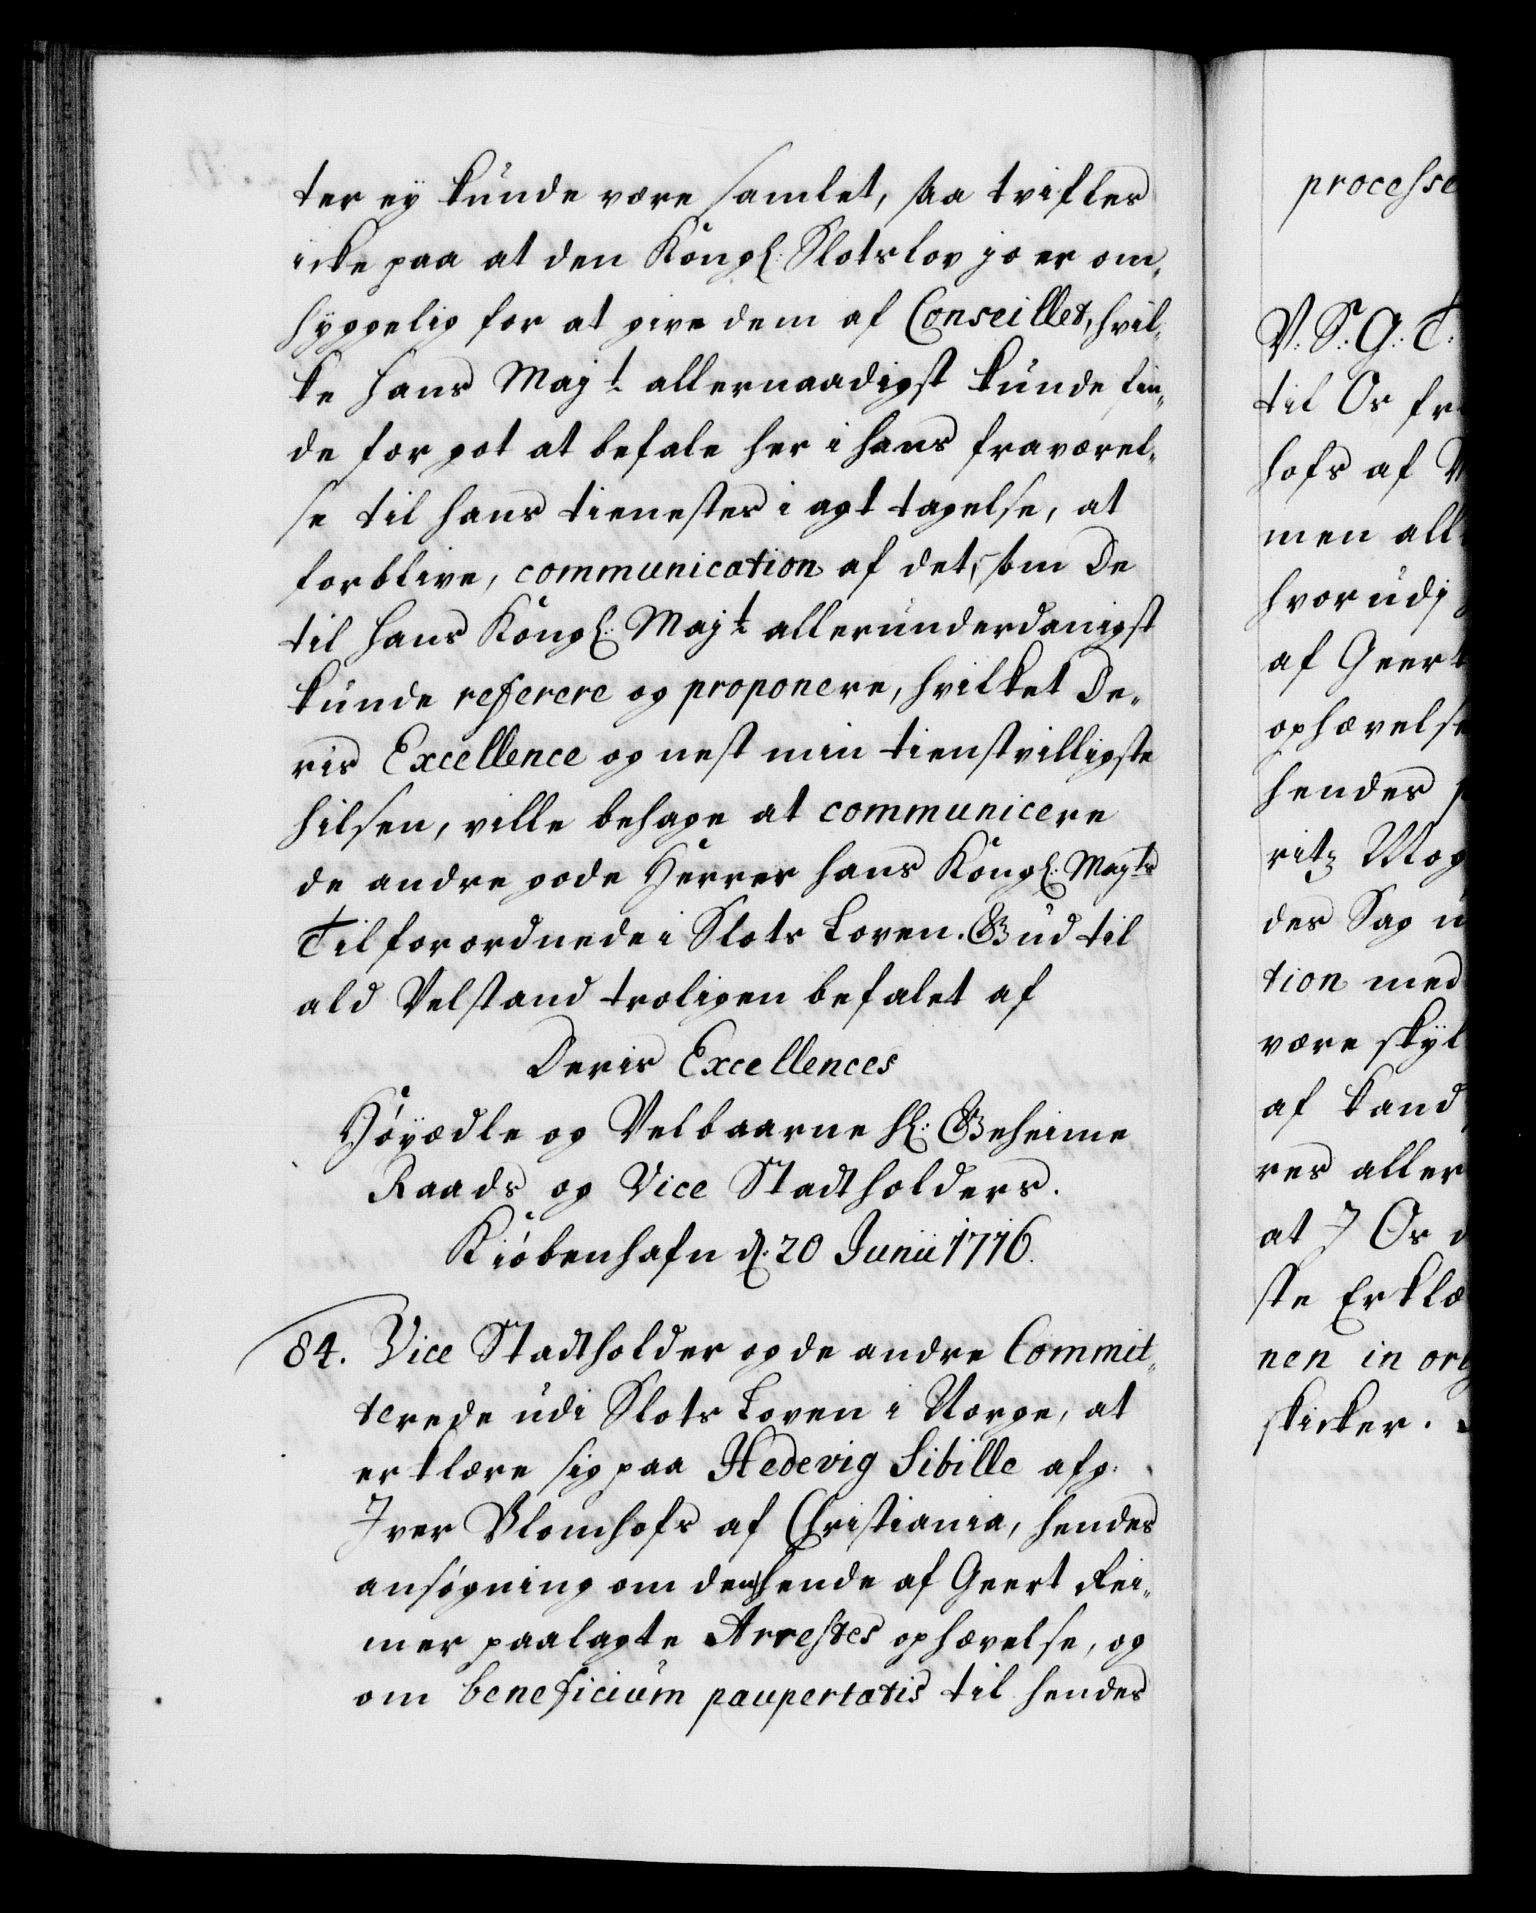 ter ey kunde være samlet, saa tvifles
icke paa at den Kongl: Slotslov jo er om-
hyggelig for at give dem af Conseillet, hvil-
ke Hans Majt. allernaadigst kunde fin-
de for got at befale her i hans fraværel-
se til hans tienestes i agt tagelse, at
forblive, communication af det, som De
til Hans Kongl: Majt. allerunderdanigst
kunde referere og proponere, hvilket De-
ris Excellence og nest min tienstvilligste
hilsen, ville behage at communicere
de andre gode Herrer hans Kongl: Mayts
Tilforordnede i Slots Loven. Gud til
ald Velstand troligen befalet af
Deris Excellences
Höyædle og Velbaarne Hl: Geheime
Raads og Vice Stadtholders.
Kiöbenhafn d: 20 Junii 1716.
84. Vice Stadtholder og de andre Commit-
terede udi Slots Loven i Norge, at
erklære sig paa Hedevig Sibille afg:
Iver Blomhofs af Christiania, hendes
ansøgning om den hende af Geert Rei-
mer paalagte Arrestes ophævelse, og
om beneficium paupertatis til hendes
processe
V: S: G: T:
til Os fr
hofs af
men all
hvorudj
af Geert
ophævelse
hendes
ritz Mog
des Sag u
tion med
være skyl
af kand
res aller
at I Os
ste Erklæ
nen in ori
skicker.